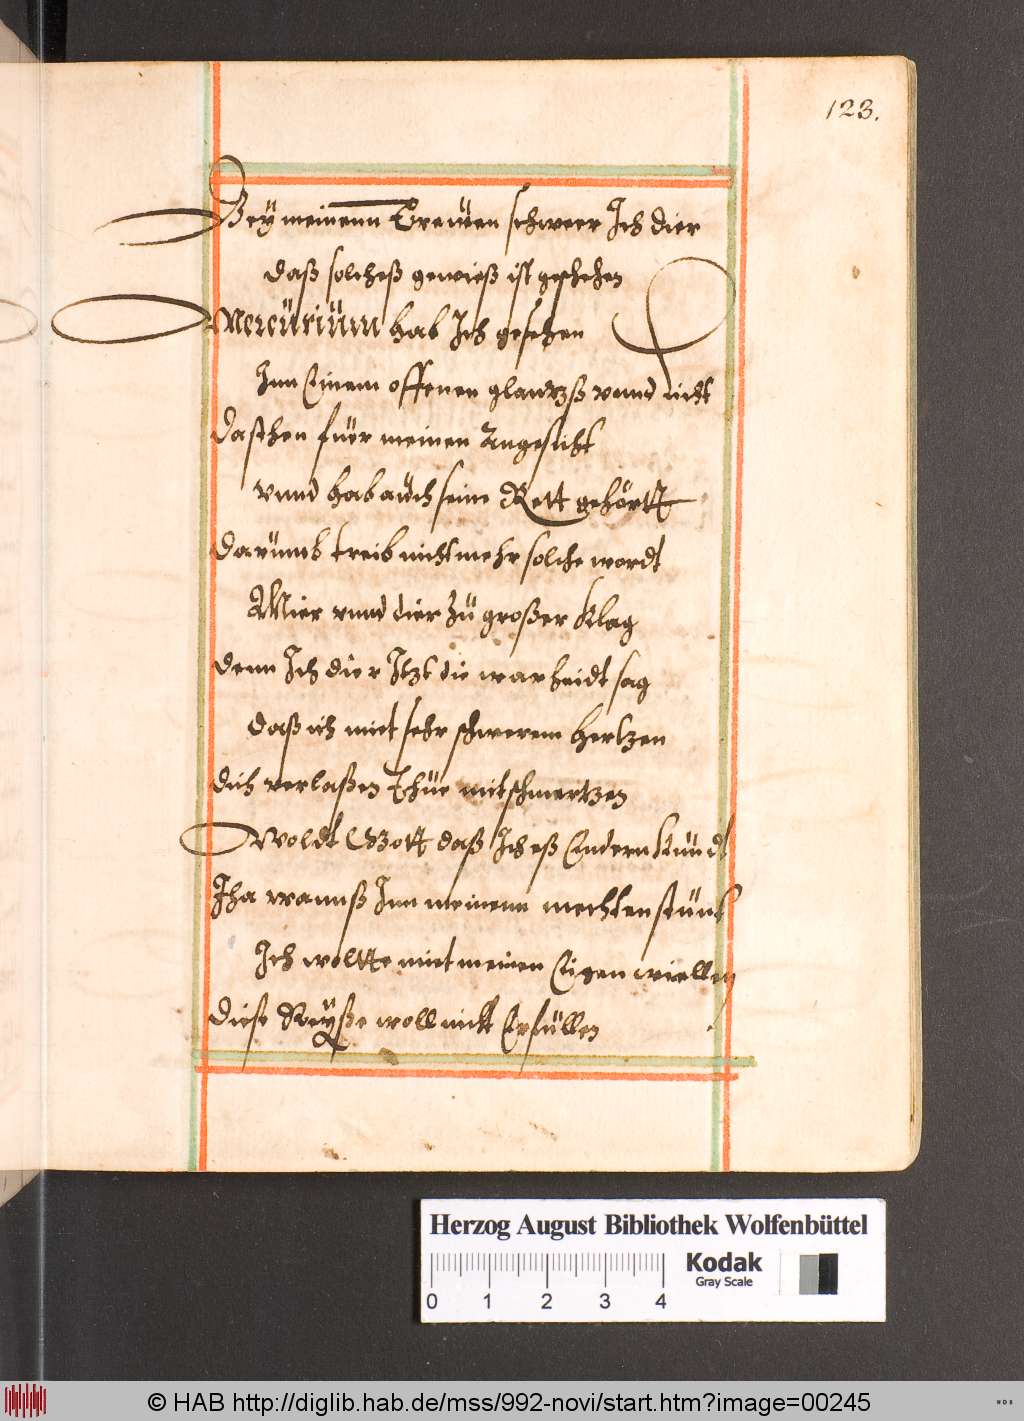 123.
Bey meinenn Trewen schweer Ich dier
daß solcheß gewieß ist geschehen
Mercurium hab Ich gesehen
Inn Einem offenen glantzß vnnd licht
Daschen fuer meinen Angesicht
vnnd hab auch seine Rett gehörtt
Darumb treib nicht mehr solche wordt
Mier vnnd dier zu großer klag
denn Ich dier Itzt die warheidt sag
daß ich miet sehr schwerem hertzen
dich verlaßen Thue mit schmertzen
Woldt Gott daß Ich eß Endern kundt
Iha wannß Inn meinenn mechten stunt
Ich woltte miet meinen Eigen wiellen
diese Reyße woll nicht Erfüllen
Herzog August Bibliothek Wolfenbüttel
Kodak
Gray Scale
0 1 2 3 4
© HAB http://diglib.hab.de/mss/992-novi/start.htm?image=00245